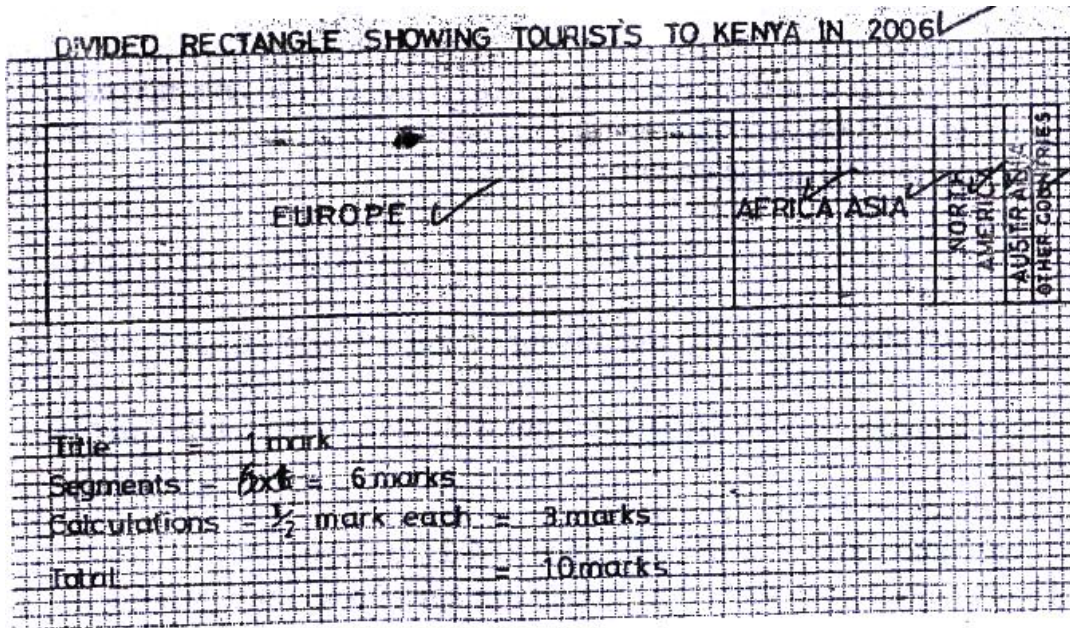 DIVIDED RECTANGLE SHOWING TOURISTS TO KENYA IN 2006
EUROPE
AFRICA
ASIA
NORTH
AMERICA
AUSTRALIA
OTHER COUNTRIES
Title = 1 mark
Segments - = 6 marks
Calculations - 1/2 mark each = 3 marks
Total = 10 marks